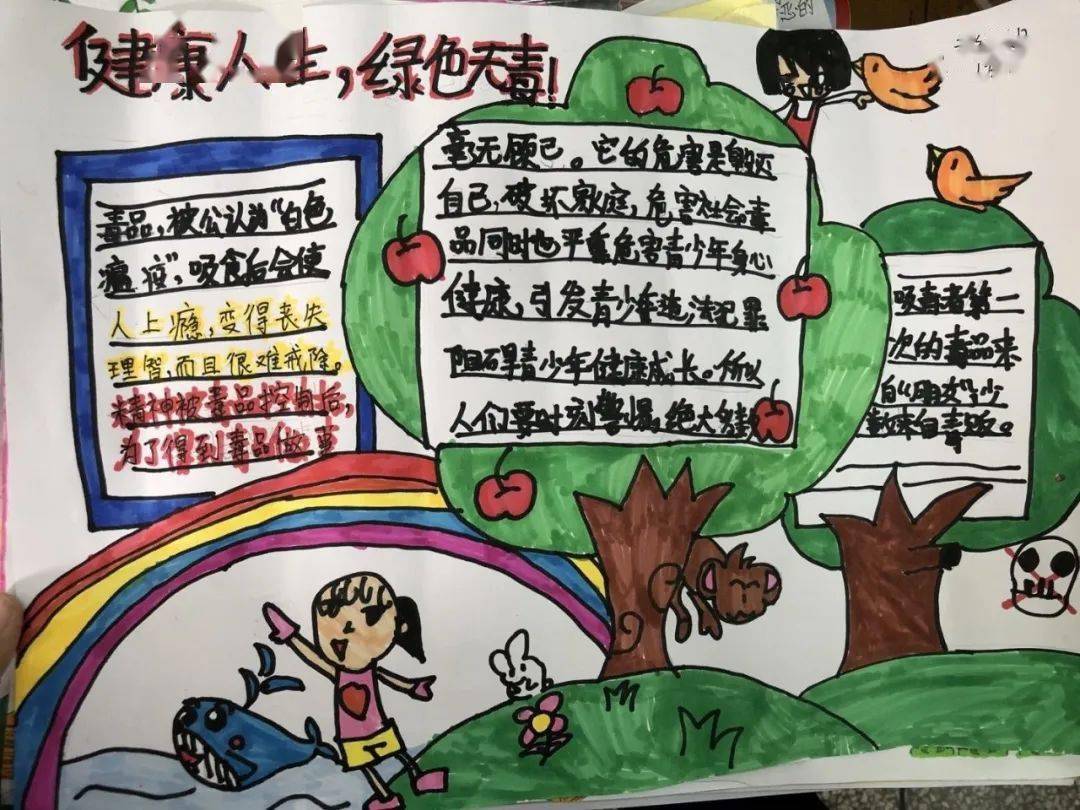 健康人生,绿色无毒!
毒品,被公认为“白色
瘟疫”,吸食后会使
人上瘾,变得丧失
理智,而且很难戒除。
精神被毒品控制后,
为了得到毒品做
毫无顾己。它的危害是毁灭
自己,破坏家庭,危害社会毒
品同时也严重危害青少年身心
健康,引发青少年违法犯罪
阻碍青少年健康成长。所以
人们要时刻警惕,绝大多数
吸毒者第一
次的毒品来
自“朋友”少
数来自毒贩。